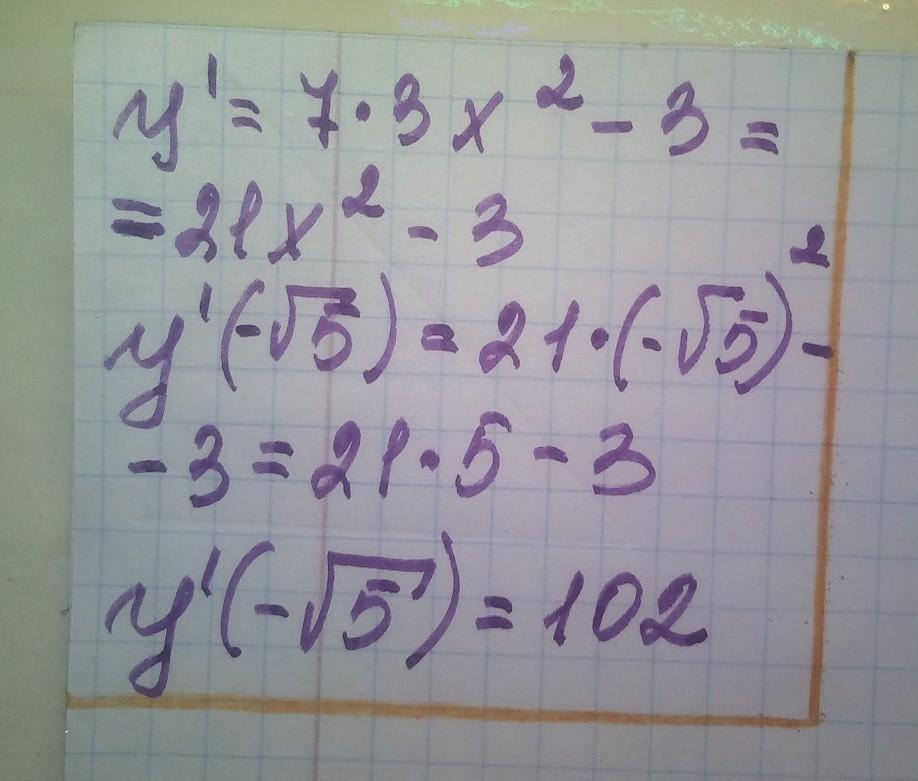 y' = 7·3x² - 3 =
= 21x² - 3
y'(-√5) = 21·(-√5)² -
- 3 = 21·5 - 3
y'(-√5) = 102